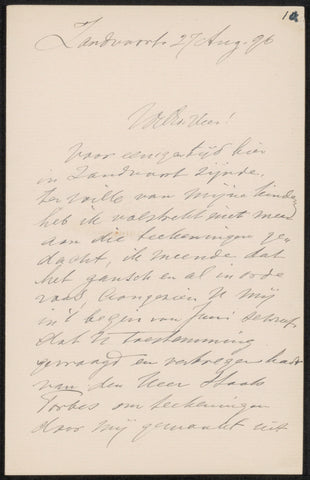 10
Zandvoort 27 Aug. 96
WelEd. Heer!
Voor eenigen tijd hier
in Zandvoort zijnde,
ter wille van mijne kinderen
heb ik volstrekt niet meer
aan die teekeningen ge-
dacht, ik meende dat
het gansch en al in orde
was, aangezien U mij
in 't begin van Juni schreef
dat U toestemming
gevraagd en verkregen had
van den Heer Staats
Forbes om teekeningen
door mij gemaakt uit